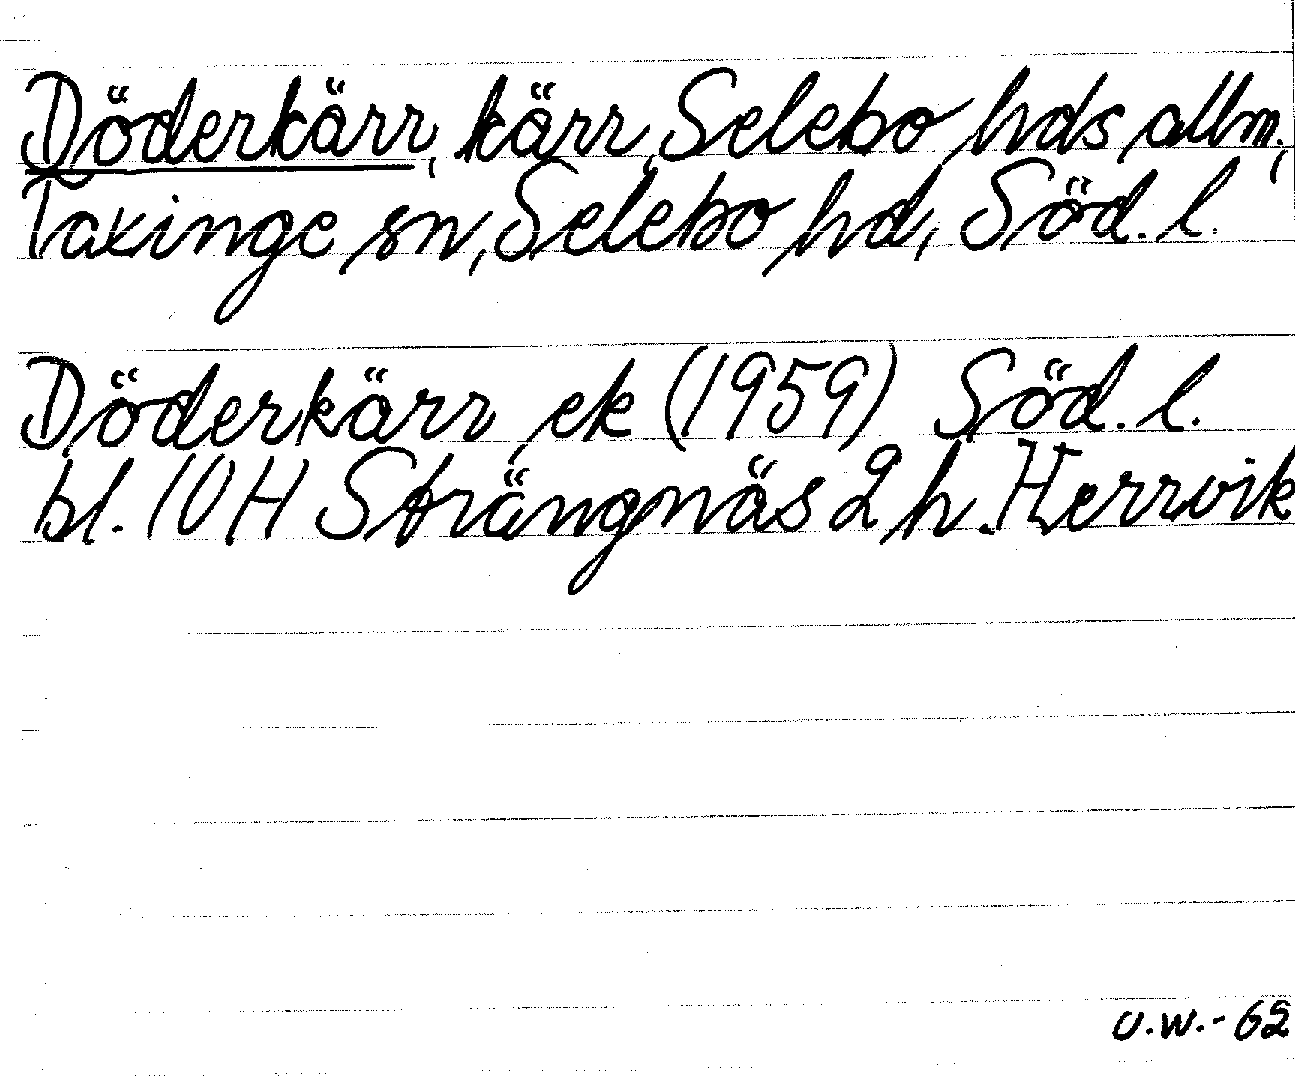 Döderkärr, kärr, Selebo hds allm.,
Taxinge sn, Selebo hd, Söd. l.
Döderkärr, ek (1959) Söd. l.
bl. 10H Strängnäs 2 h. Herrvik
U.W.-62